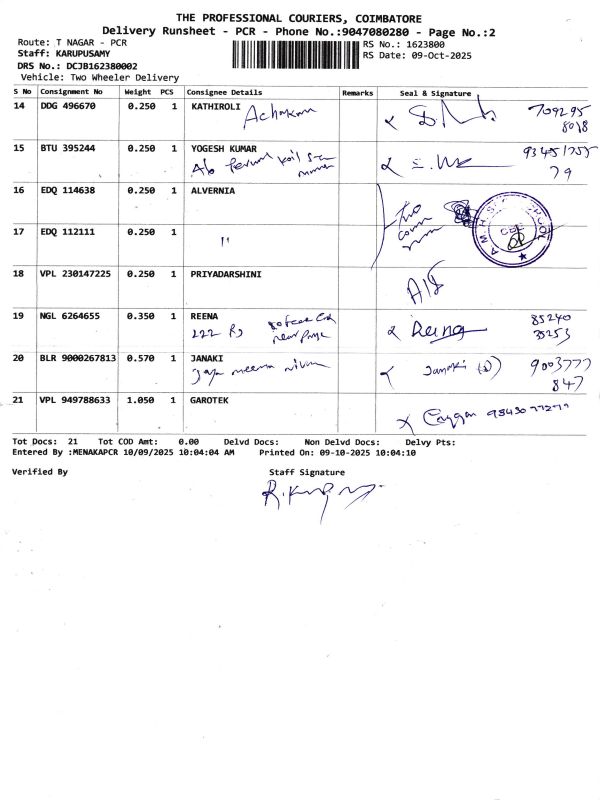 THE PROFESSIONAL COURIERS, COIMBATORE
Delivery Runsheet - PCR - Phone No.:9047080280 - Page No.:2
Route: T NAGAR - PCR
RS No.: 1623800
Staff: KARUPUSAMY
RS Date: 09-Oct-2025
DRS No.: DCJB162380002
Vehicle: Two Wheeler Delivery
S No Consignment No Weight PCS Consignee Details Remarks Seal & Signature
14 DDG 496670 0.250 1 KATHIROLI
709295
8018
15 BTU 395244 0.250 1 YOGESH KUMAR
79
16 EDQ 114638 0.250 1 ALVERNIA
17 EDQ 112111 0.250 1 "
18 VPL 230147225 0.250 1 PRIYADARSHINI
19 NGL 6264655 0.350 1 REENA
Reena
85240
35253
20 BLR 9000267813 0.570 1 JANAKI
Janaki
9003777
847
21 VPL 949788633 1.050 1 GAROTEK
Tot Docs: 21 Tot COD Amt: 0.00 Delvd Docs: Non Delvd Docs: Delvy Pts:
Entered By :MENAKAPCR 10/09/2025 10:04:04 AM Printed On: 09-10-2025 10:04:10
Verified By Staff Signature